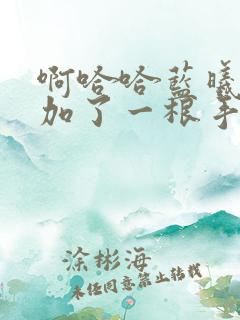 啊哈哈蓝曦
加了一根手
涂彬海
未经同意禁止转载